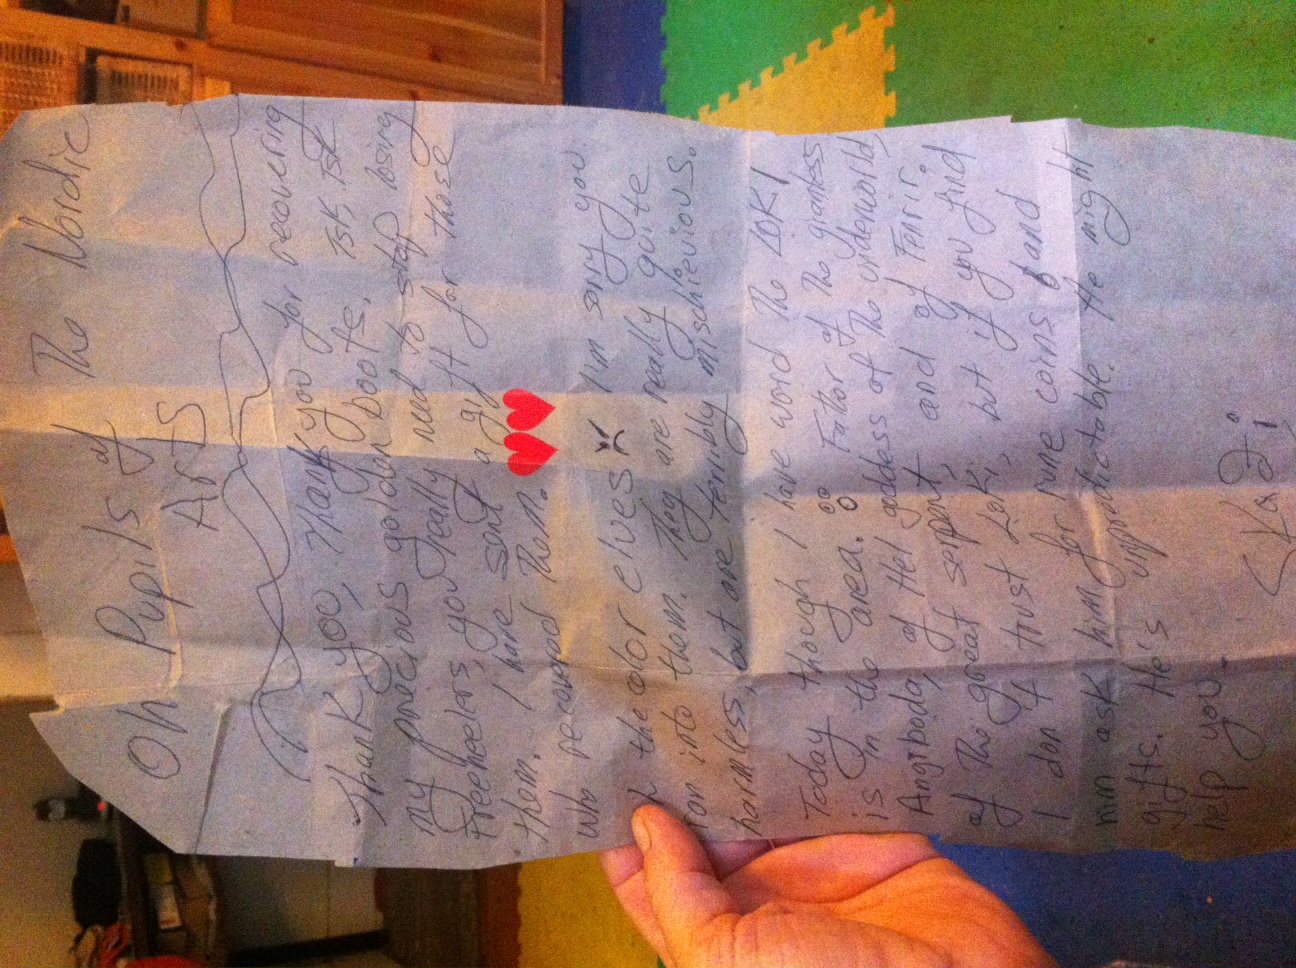 Oh Pupils of The Nordic
Arts
Thank you, Thank you for recovering
my precious golden boots. Tsk, Tsk
Freeheelers, you really need to stop losing
them. I have sent a gift for those
who recovered them.
the color elves I'm sorry you
ran into them. They are really quite
harmless, but are terribly mischievious.
Today though I have word The LOKI
is in the area. Father of The giantess
Angiboda, of Hel goddess of The underworld,
of The great serpent, and of Fenrir.
I don't trust Loki, but if you find
him ask him for rune coins and
gifts. He's unpredictable. He might
help you.
Skadi